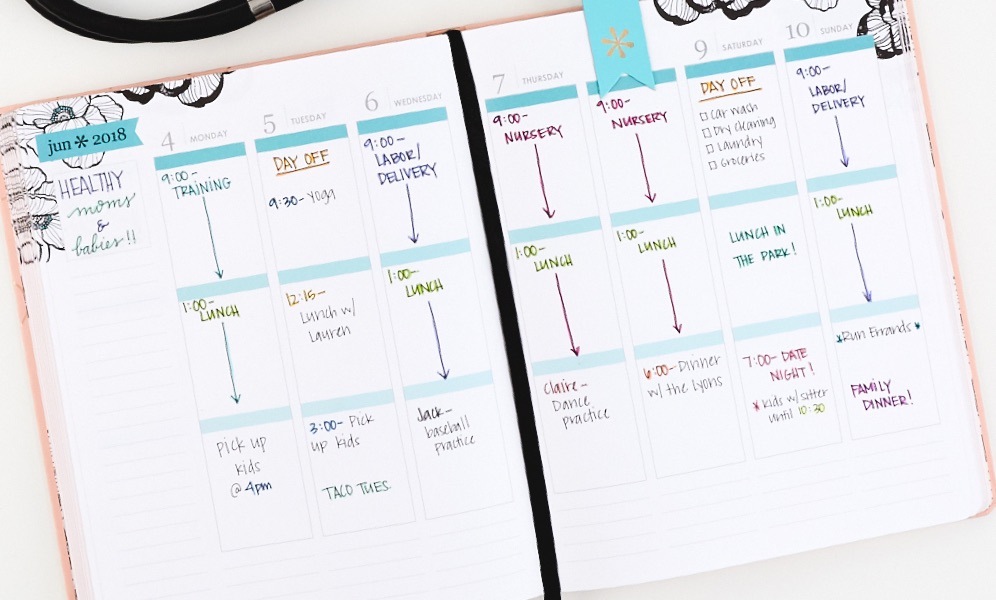 jun * 2018
HEALTHY
moms
&
babies!!
4 MONDAY
9:00-
TRAINING
1:00-
LUNCH
pick up
kids
@ 4pm
5 TUESDAY
DAY OFF
9:30- Yoga
12:15-
Lunch w/
Lauren
3:00- Pick
up kids
TACO TUES.
6 WEDNESDAY
9:00-
LABOR/
DELIVERY
1:00-
LUNCH
Jack-
baseball
practice
7 THURSDAY
9:00-
NURSERY
1:00-
LUNCH
Claire-
Dance
practice
9:00-
NURSERY
1:00-
LUNCH
6:00- Dinner
w/ the Lyons
9 SATURDAY
DAY OFF
Car wash
Dry cleaning
Laundry
Groceries
LUNCH IN
THE PARK!
7:00- DATE
NIGHT!
* kids w/ sitter
until 10:30
10 SUNDAY
9:00-
LABOR/
DELIVERY
1:00-
LUNCH
*Run Errands*
FAMILY
DINNER!